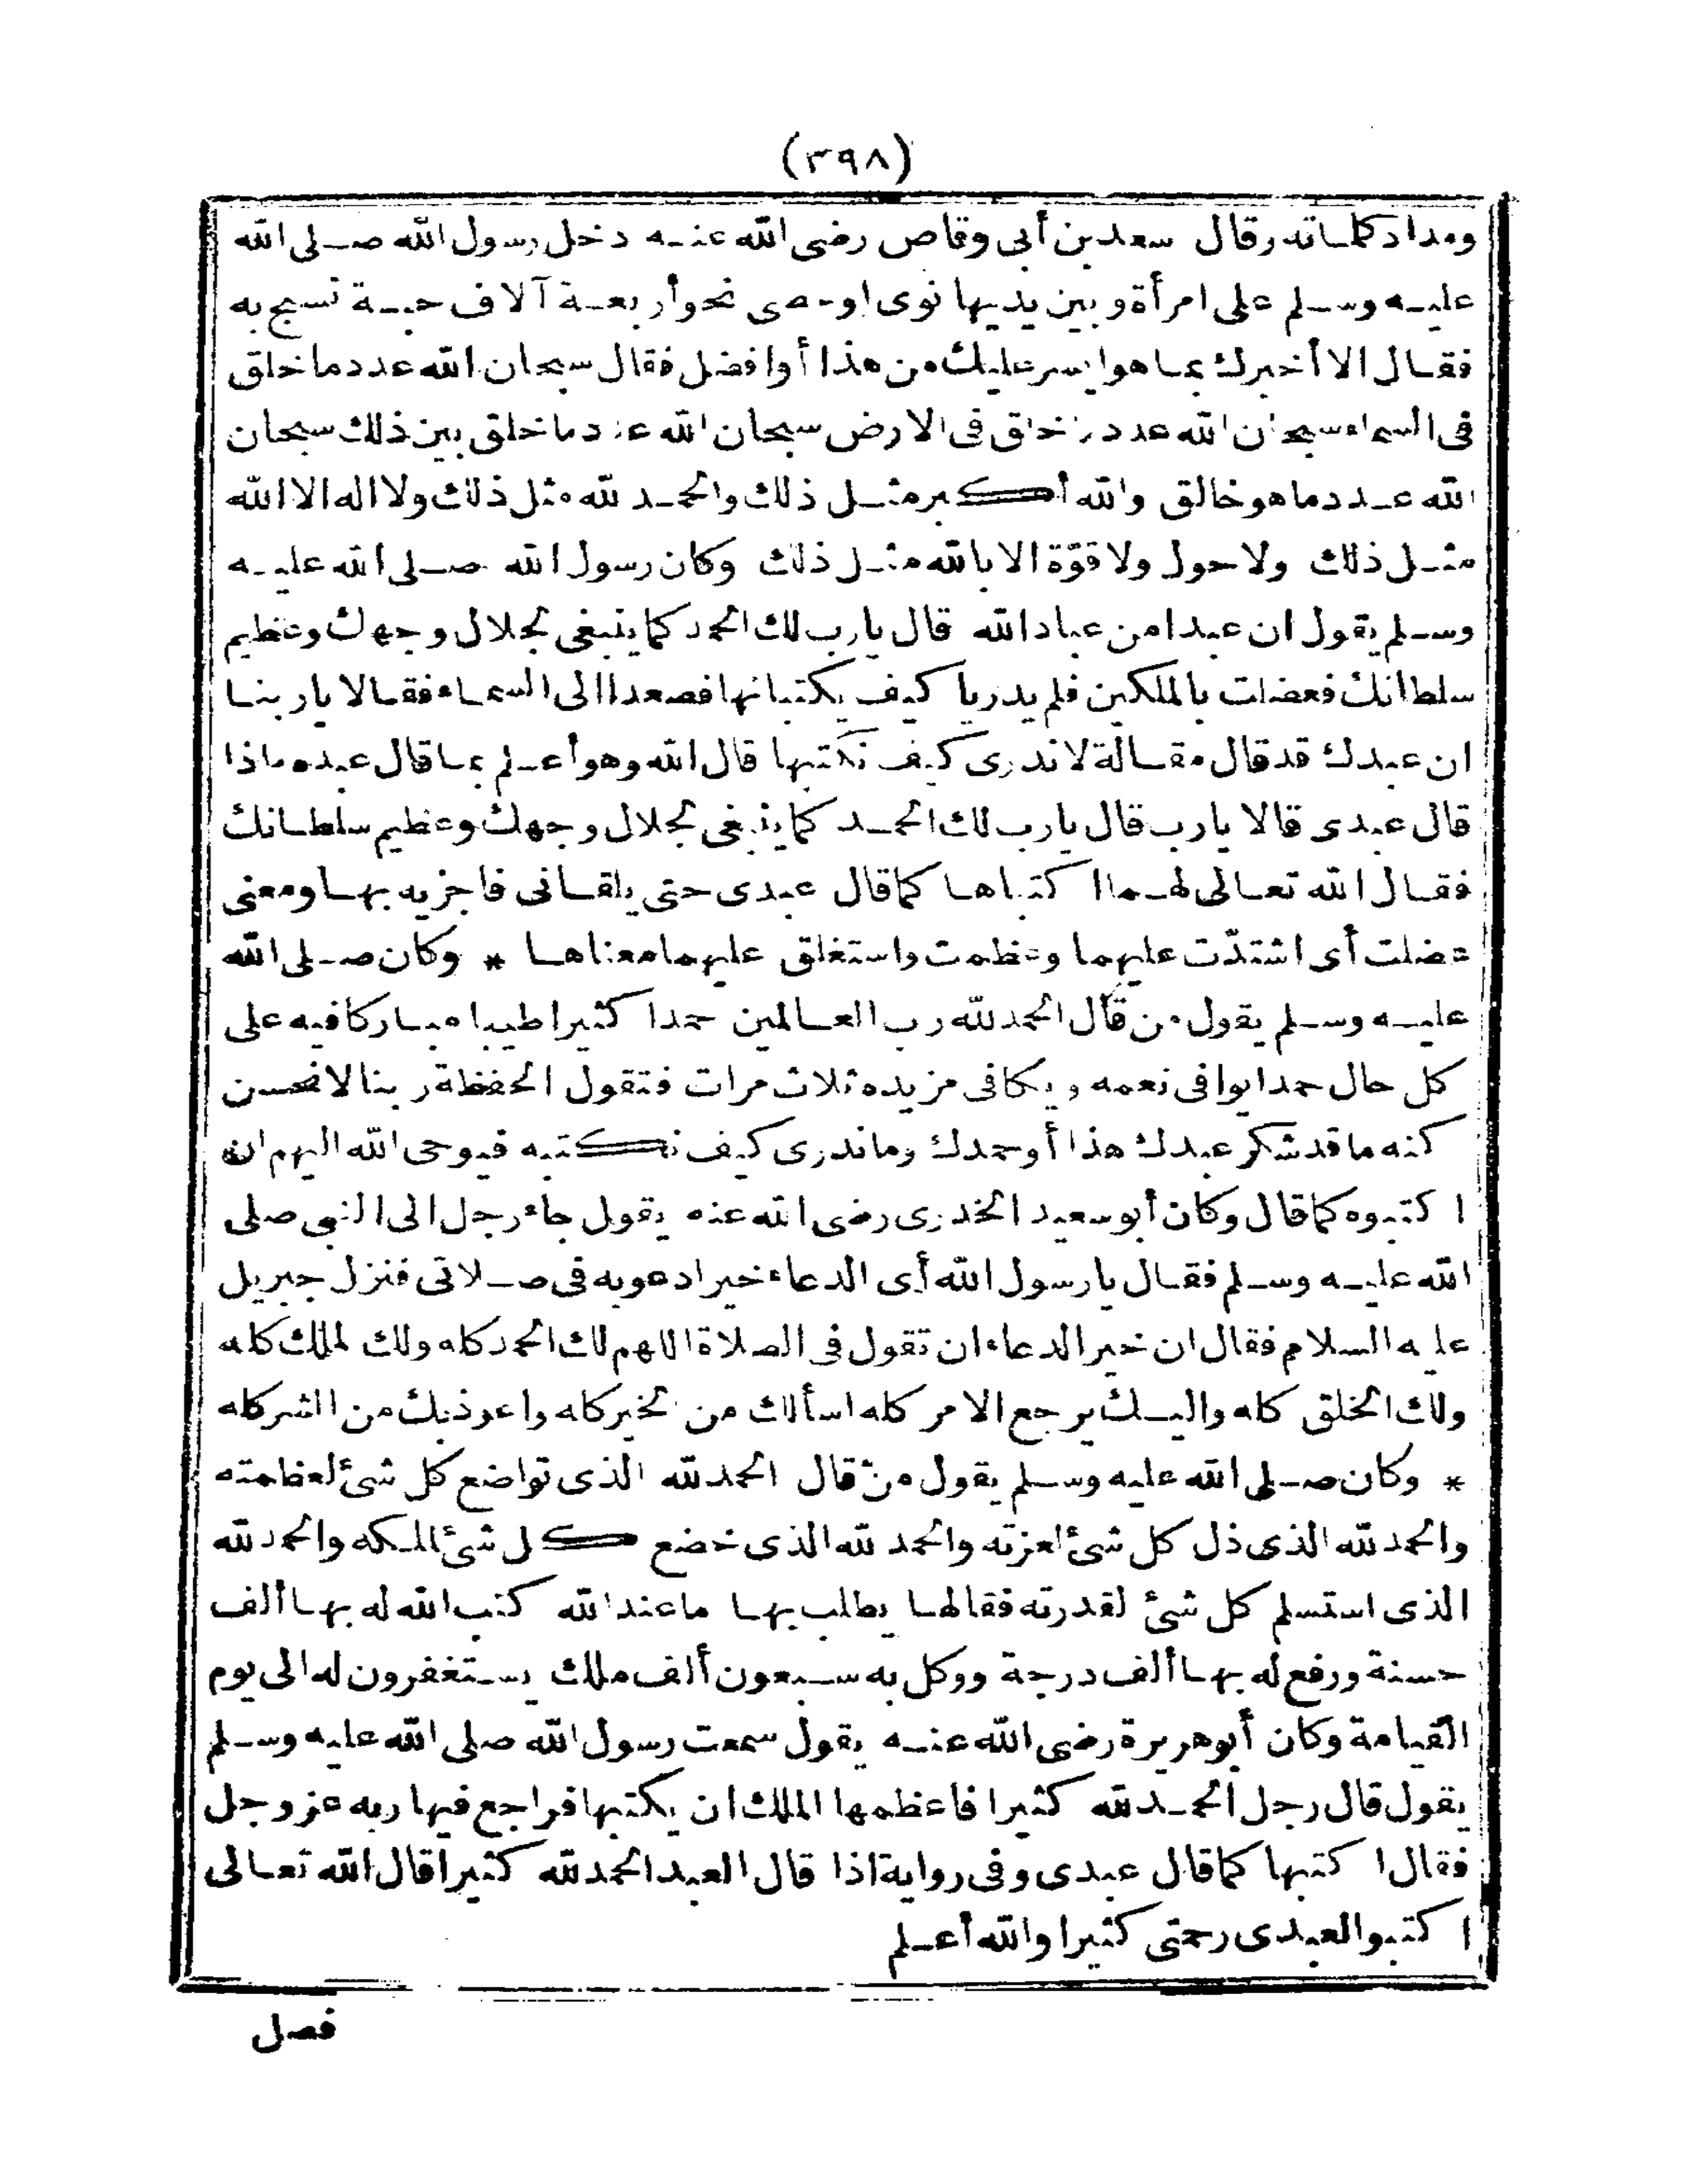 (٣٩٨)
ومداد كلماته وقال سعد بن أبى وقاص رضى الله عنه دخل رسول الله صلى الله
عليه وسلم على امرأة وبين يديها نوى او حصى نحو أربعة آلاف حبة تسبح به
فقال الا أخبرك بما هو ايسر عليك من هذا أو افضل فقال سبحان الله عدد ما خلق
فى السماء سبحان الله عدد ما خلق فى الارض سبحان الله عدد ما خلق بين ذلك سبحان
الله عدد ما هو خالق والله أكبر مثل ذلك والحمد لله مثل ذلك ولا اله الا الله
مثل ذلك ولا حول ولا قوّة الا بالله مثل ذلك وكان رسول الله صلى الله عليه
وسلم يقول ان عبدا من عباد الله قال يارب لك الحمد كما ينبغى لجلال وجهك وعظيم
سلطانك فعضلت بالملكين فلم يدريا كيف يكتبانها فصعدا الى السماء فقالا ياربنا
ان عبدك قد قال مقالة لا ندرى كيف نكتبها قال الله وهو أعلم بما قال عبده ماذا
قال عبدى قالا يارب قال يارب لك الحمد كما ينبغى لجلال وجهك وعظيم سلطانك
فقال الله تعالى لهما اكتباها كما قال عبدى حتى يلقانى فاجزيه بها ومعنى
عضلت أى اشتدّت عليهما وعظمت واستغلق عليهما معناها * وكان صلى الله
عليه وسلم يقول من قال الحمد لله رب العالمين حمدا كثيرا طيبا مباركا فيه على
كل حال حمدا يوافى نعمه ويكافى مزيده ثلاث مرات فتقول الحفظة ربنا لا نحسن
كنه ما قد شكر عبدك هذا أو حمدك وما ندرى كيف نكتبه فيوحى الله اليهم ان
اكتبوه كما قال وكان أبو سعيد الخدرى رضى الله عنه يقول جاء رجل الى النبى صلى
الله عليه وسلم فقال يا رسول الله أى الدعاء خير ادعو به فى صلاتى فنزل جبريل
عليه السلام فقال ان خير الدعاء ان تقول فى الصلاة اللهم لك الحمد كله ولك الملك كله
ولك الخلق كله واليك يرجع الامر كله اسألك من الخير كله واعوذ بك من الشر كله
* وكان صلى الله عليه وسلم يقول من قال الحمد لله الذى تواضع كل شئ لعظمته
والحمد لله الذى ذل كل شئ لعزته والحمد لله الذى خضع كل شئ لملكه والحمد لله
الذى استسلم كل شئ لقدرته فقالها يطلب بها ما عند الله كتب الله له بها ألف
حسنة ورفع له بها ألف درجة ووكل به سبعون ألف ملك يستغفرون له الى يوم
القيامة وكان أبو هريرة رضى الله عنه يقول سمعت رسول الله صلى الله عليه وسلم
يقول قال رجل الحمد لله كثيرا فاعظمها الملك ان يكتبها فراجع فيها ربه عز وجل
فقال اكتبها كما قال عبدى وفى رواية اذا قال العبد الحمد لله كثيرا قال الله تعالى
اكتبوا لعبدى رحمتى كثيرا والله أعلم
فصل